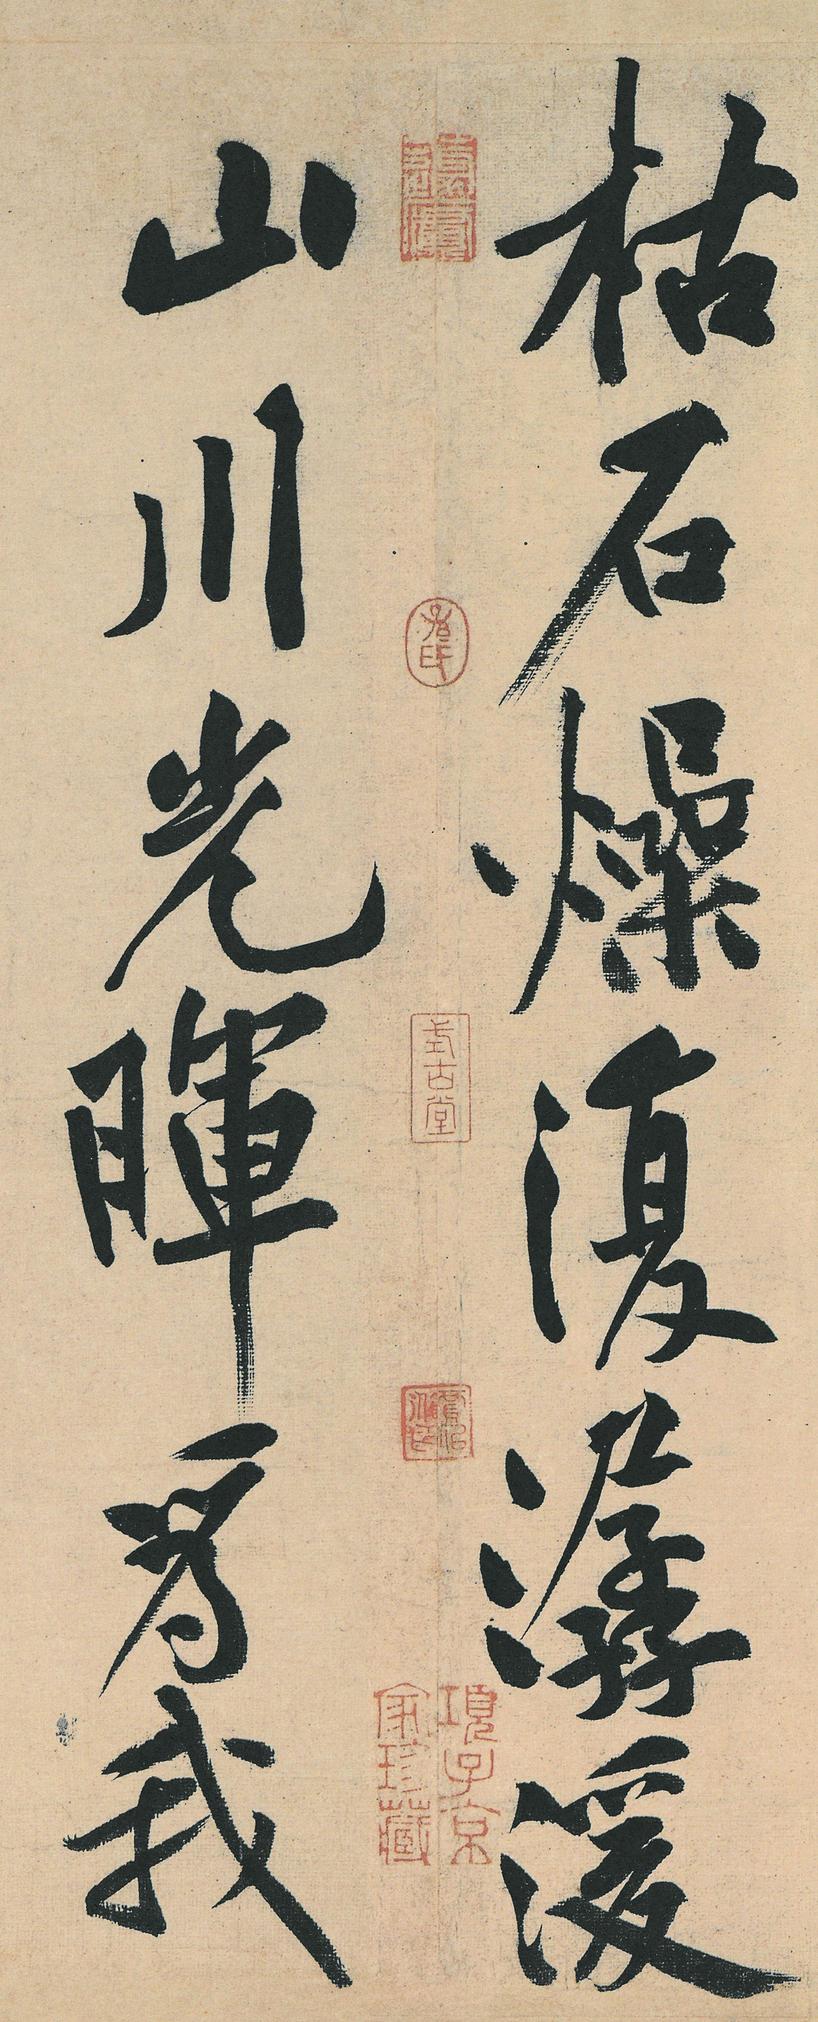 枯石燥復潺湲
山川光暉爲我
式古堂
項子京家珍藏